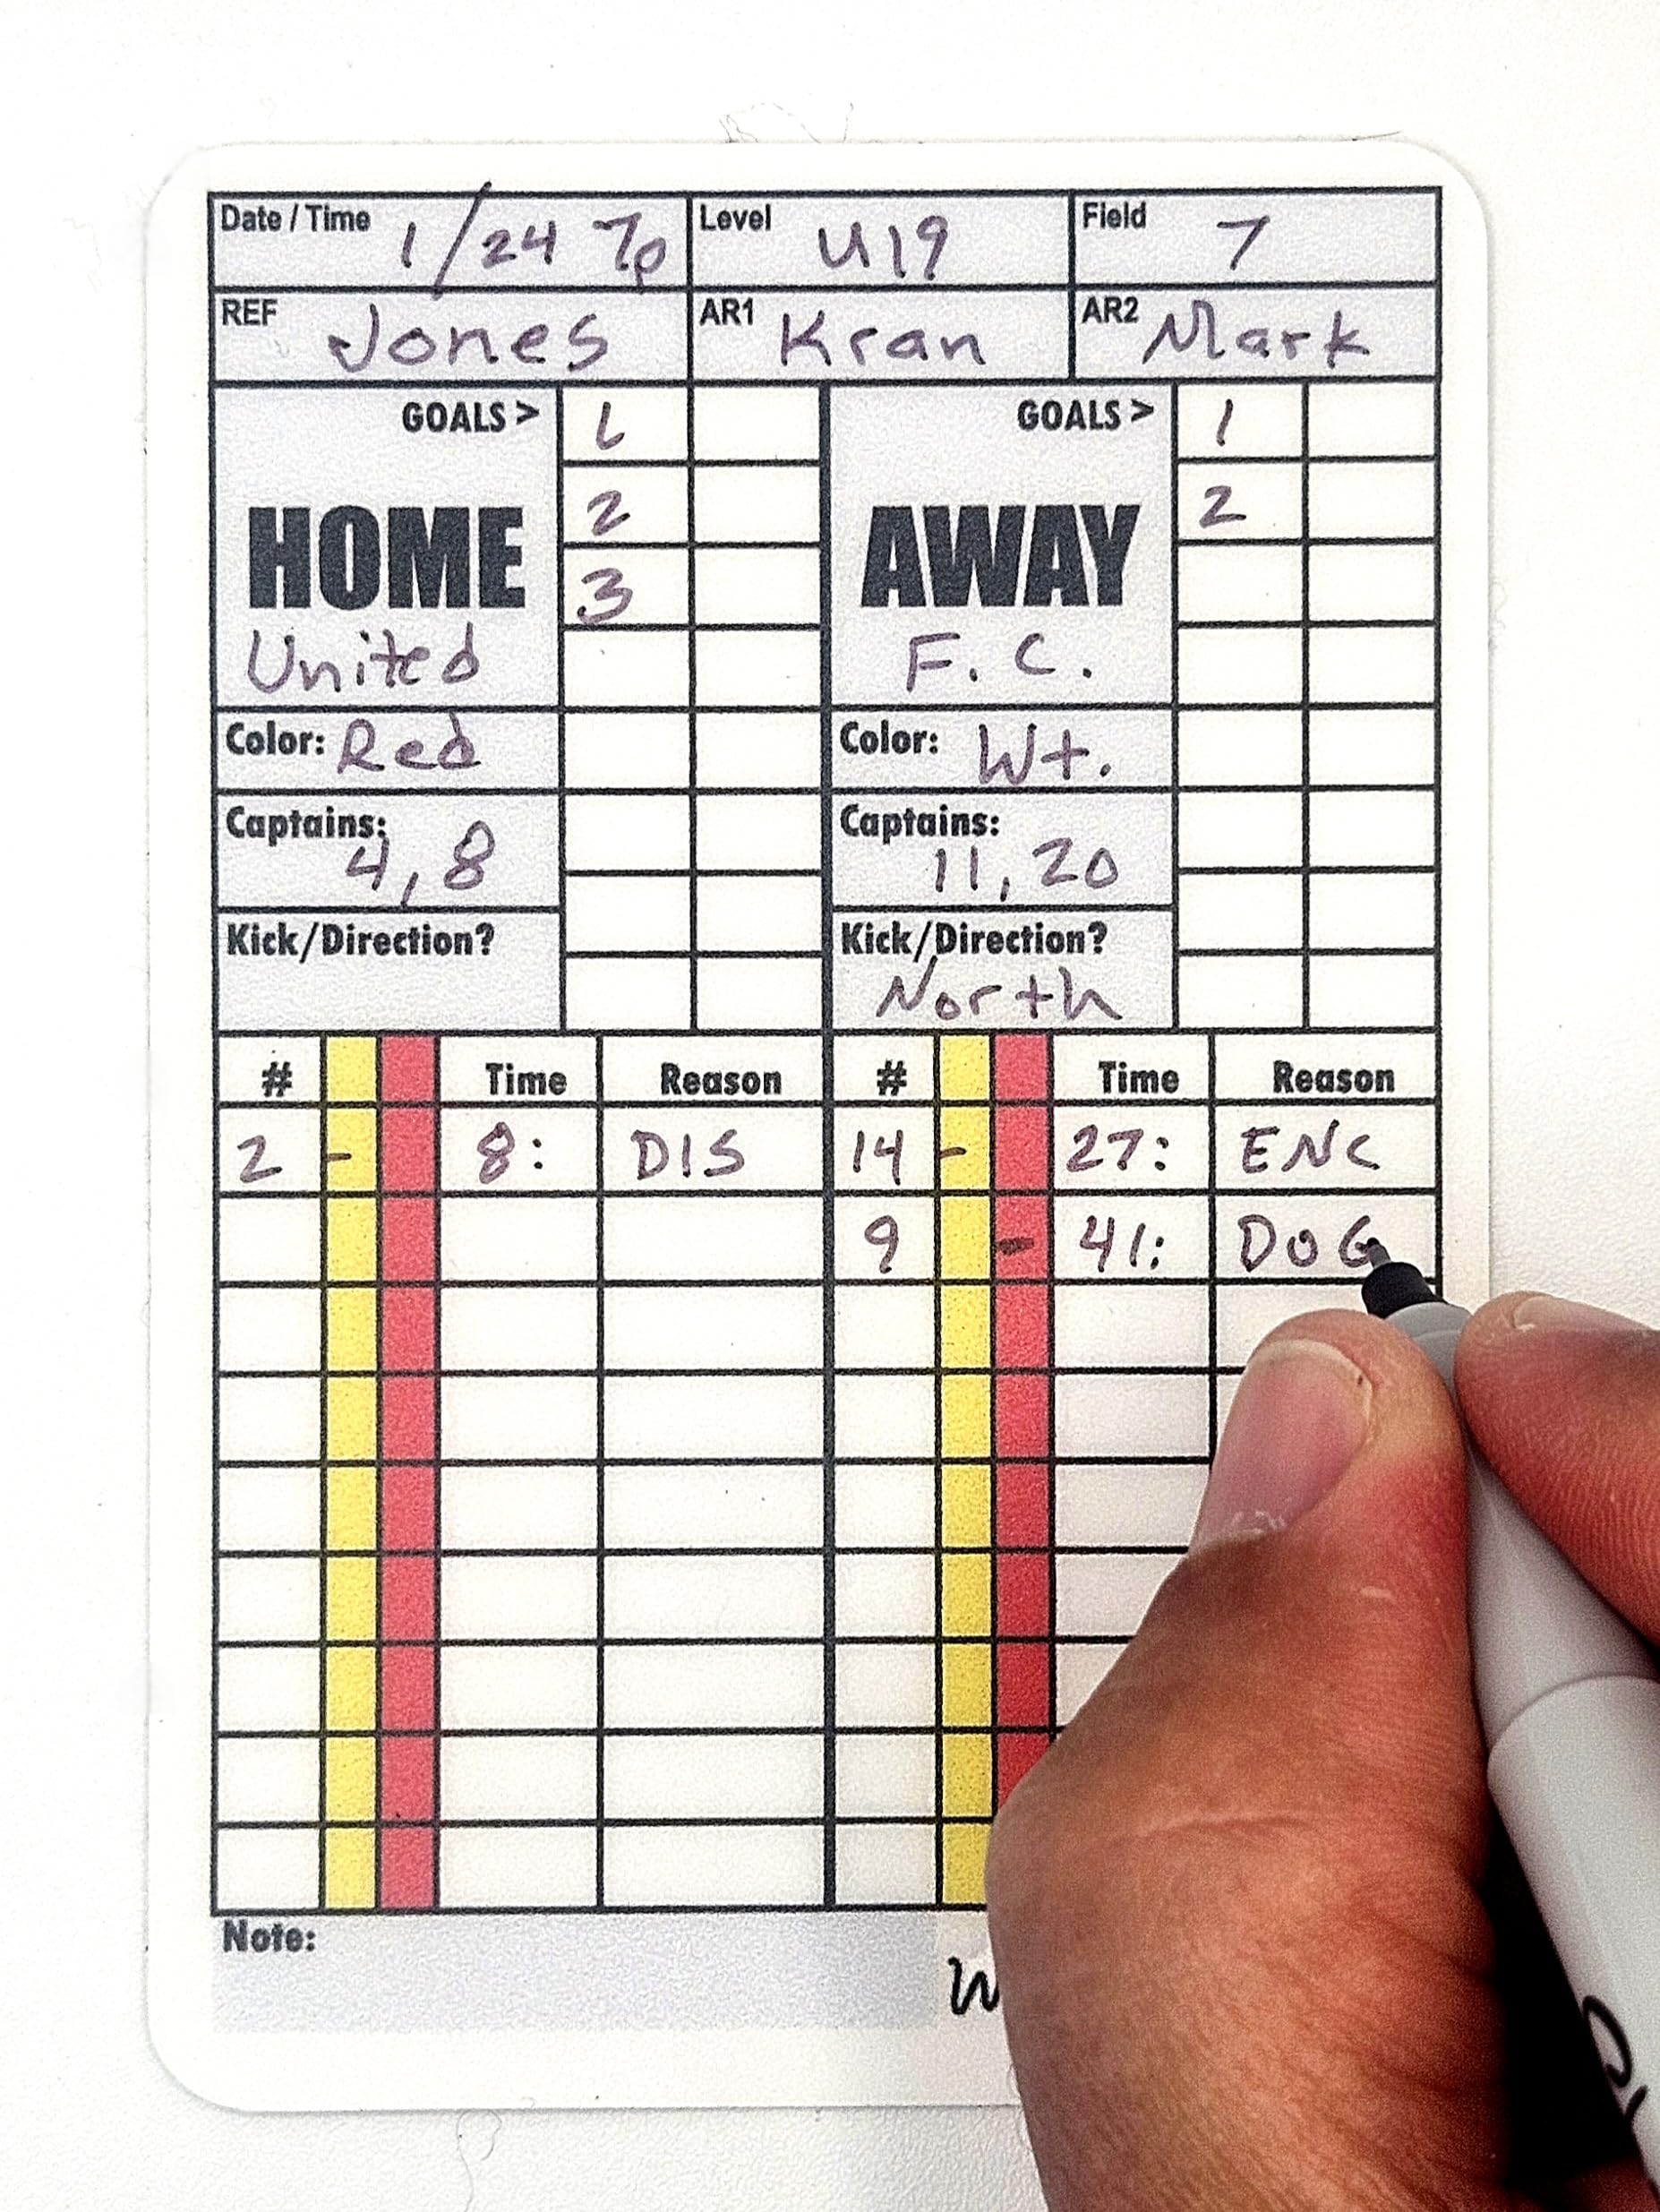 Date / Time 1/24 7p Level U19 Field 7
REF Jones AR1 Kran AR2 Mark
GOALS > 1 GOALS > 1
2 2
HOME AWAY
3
United F. C.
Color: Red Color: Wt.
Captains: 4, 8 Captains: 11, 20
Kick/Direction? Kick/Direction? North
# Time Reason # Time Reason
2 - 8: DIS 14 - 27: ENC
9 - 41: DOG
Note: